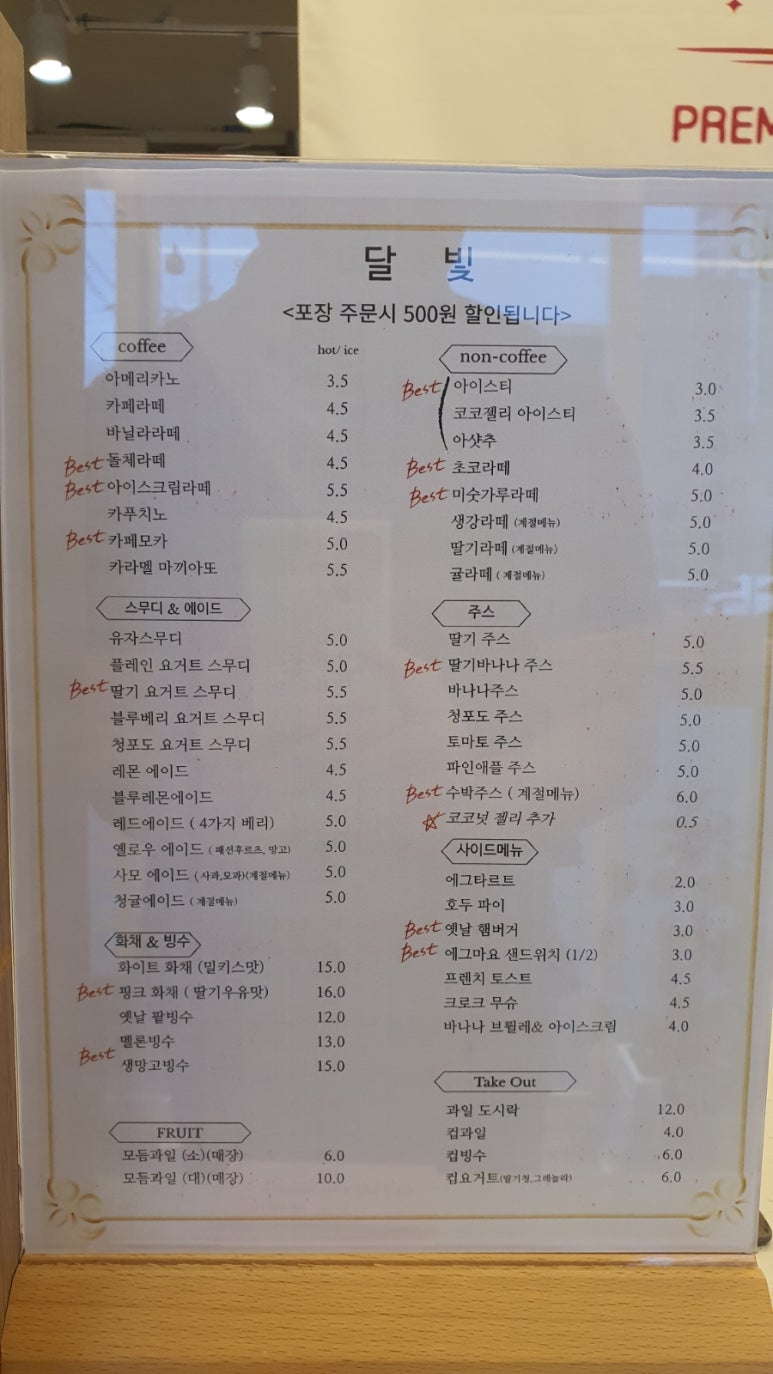 PREM
달 빛
<포장 주문시 500원 할인됩니다>
coffee hot/ ice
아메리카노 3.5
카페라떼 4.5
바닐라라떼 4.5
Best 돌체라떼 4.5
Best 아이스크림라떼 5.5
카푸치노 4.5
Best 카페모카 5.0
카라멜 마끼아또 5.5
스무디 & 에이드
유자스무디 5.0
플레인 요거트 스무디 5.0
Best 딸기 요거트 스무디 5.5
블루베리 요거트 스무디 5.5
청포도 요거트 스무디 5.5
레몬 에이드 4.5
블루레몬에이드 4.5
레드에이드 ( 4가지 베리) 5.0
옐로우 에이드 ( 패션후르츠, 망고) 5.0
사모 에이드 (사과,모과)(계절메뉴) 5.0
청귤에이드 ( 계절메뉴) 5.0
화채 & 빙수
화이트 화채 (밀키스맛) 15.0
Best 핑크 화채 ( 딸기우유맛) 16.0
옛날 팥빙수 12.0
멜론빙수 13.0
Best 생망고빙수 15.0
FRUIT
모듬과일 (소)(매장) 6.0
모듬과일 (대)(매장) 10.0
non-coffee
Best 아이스티 3.0
코코젤리 아이스티 3.5
아샷추 3.5
Best 초코라떼 4.0
Best 미숫가루라떼 5.0
생강라떼 (계절메뉴) 5.0
딸기라떼 (계절메뉴) 5.0
귤라떼 ( 계절메뉴) 5.0
주스
딸기 주스 5.0
Best 딸기바나나 주스 5.5
바나나주스 5.0
청포도 주스 5.0
토마토 주스 5.0
파인애플 주스 5.0
Best 수박주스 ( 계절메뉴) 6.0
☆ 코코넛 젤리 추가 0.5
사이드메뉴
에그타르트 2.0
호두 파이 3.0
Best 옛날 햄버거 3.0
Best 에그마요 샌드위치 (1/2) 3.0
프렌치 토스트 4.5
크로크 무슈 4.5
바나나 브륄레& 아이스크림 4.0
Take Out
과일 도시락 12.0
컵과일 4.0
컵빙수 6.0
컵요거트(딸기청,그레놀라) 6.0